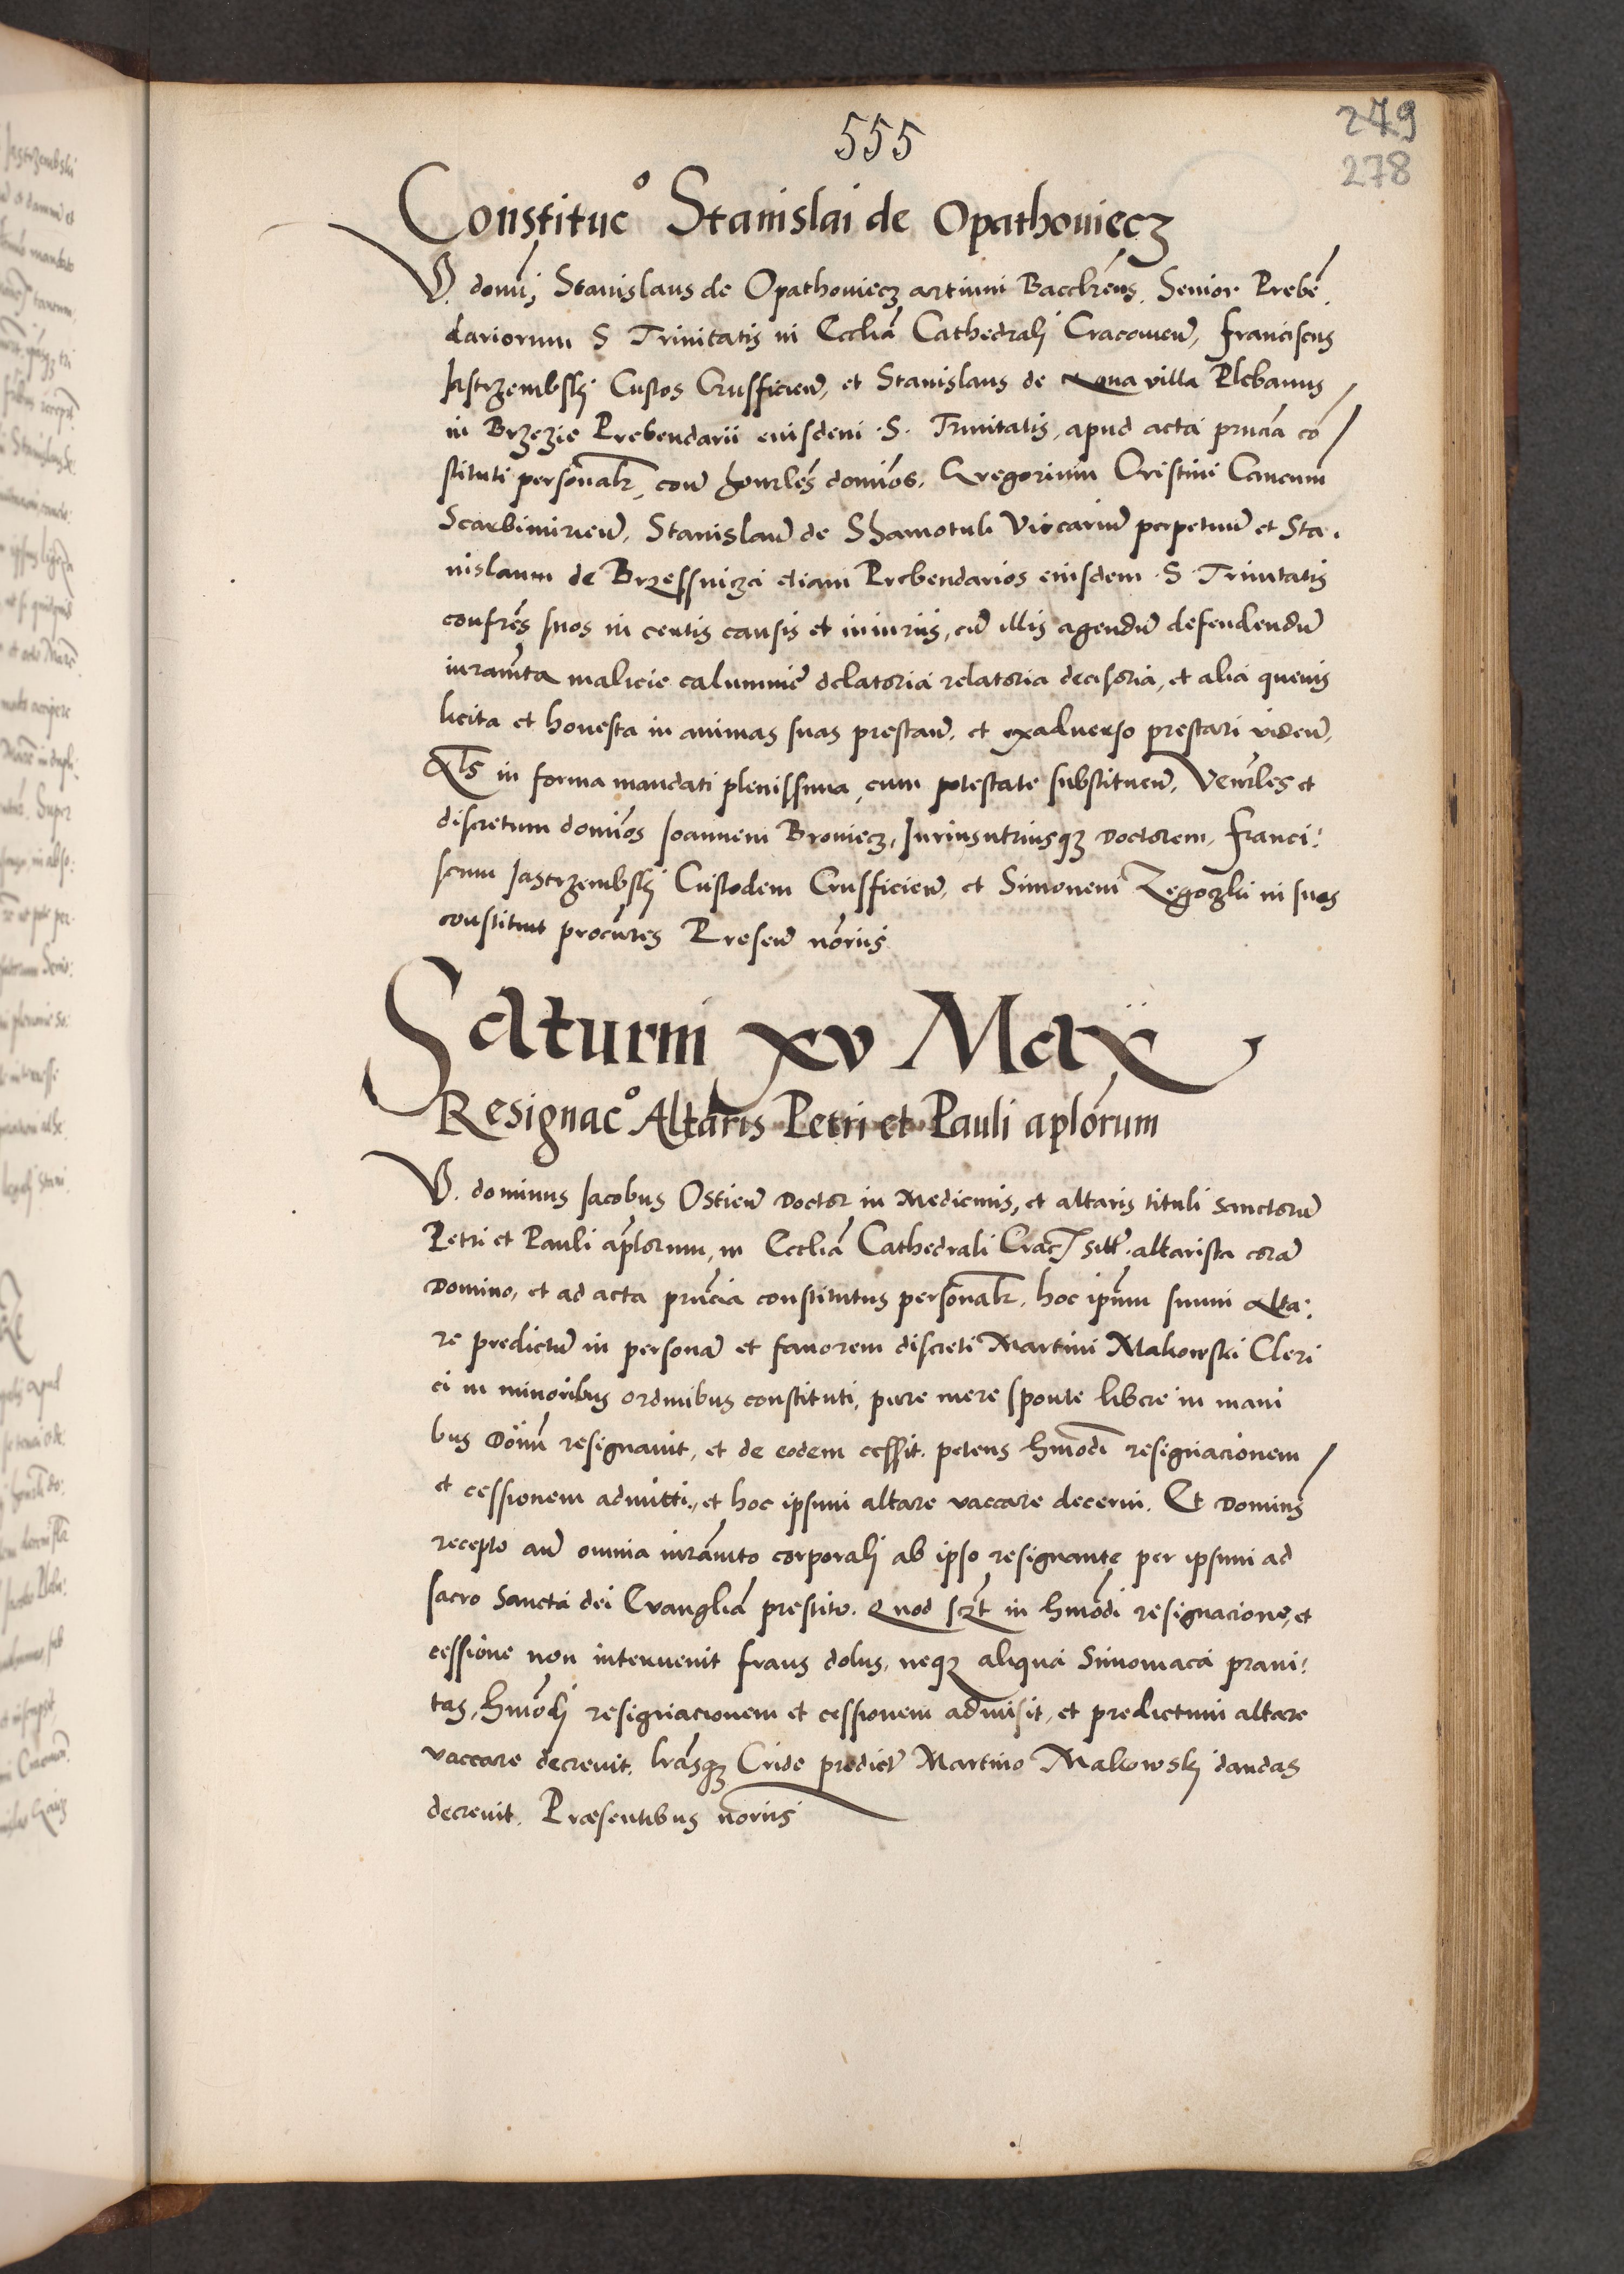 555
279
278
Constituc° Stanislai de Opathouiecz
V. domi Stanislaus de Opathouiecz artium Bacclrēus. Senior Prebē
dariorum S Trinitatis in Eccliā Cathedrali Cracouieñ, Franciscus
Jastrzembskj Custos Crusficieñ, et Stanislaus de noua villa Plebanus
in Brzezie Prebendarii eiusdem .S. Trinitatis, apud acta pn̄cia cō
stituti personalr, con̄ honrles domīos, Gregorium Cristini Cancum
Scarbimirieñ, Stanislaū de Shamotuli Viccariū perpetuū et Sta.
nislaum de Brzessniczi etiam Prebendarios eiusdem .S. Trinitatis
confrēs suos in ceutis causis et iniuriis, cū illis agendū defendendū
iuramta malicie calumnie delatoria relatoria decisoria, et alia queuis
licita et honesta in animas suas prestañ, et exaduerso prestari videñ,
Als in forma mandati plenissima, cum potestate substitueñ, Venrles et
discretum domīos Joannem Brouiecz, Jurius utriusqz Doctorem, Franci:
scum Jastrzembskj Custodem Crusficieñ, et Simonem Zegoczki in suos
constituit procūres Preseñ nōriis
Saturni xv Maÿ
Resignac° Altaris Petri et Pauli aplōrum
V. dominus Jacobus Ostieñ Doctor in Medicinis, et altaris tituli Sanctorū
Petri et Pauli aplōrum, in Eccliā Cathedrali Crac siti. altarista corā
Domino, et ad acta pn̄cia constitutus personalr. hoc ipsum suum Alta:
re predictū in personā et fauorem discreti Martini Makowski Cleri
ci in minoribus ordinibus constituti, pure mere sponte libere in mani
bus Dōni resignauit, et de eodem cessit. petens hmōdi resignacionem
et cessionem admitti, et hoc ipsum altare vaccare decerni. Et Dominus
recepto añ omnia iurāmto corporalj ab ipso resignante per ipsum ad
sacro Sancta dei Evangliā prestito. Quod sczt in hmōdi resignacione, et
cessione non interuenit fraus dolus, neqz aliqua Simoniaca praui:
tas, hmōdj resignacionem et cessionem admisit, et predictum altare
vaccare decreuit. lrasqz Cride predict Martino Makowskj dandas
decreuit. Præsentibus nōriis